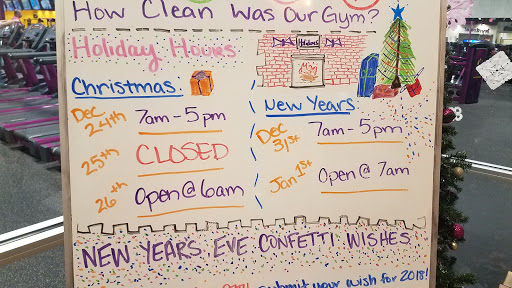 How Clean Was Our Gym?
Holiday Hours
Christmas
Dec 24th 7am - 5pm
25th CLOSED
26th Open @ 6am
New Years
Dec 31st 7am - 5pm
Jan 1st Open @ 7am
NEW YEARS EVE CONFETTI WISHES
submit your wish for 2018!